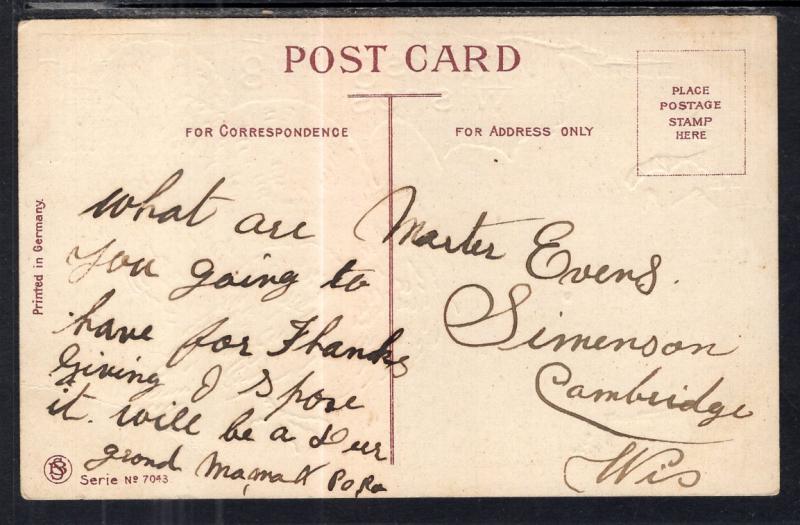 POST CARD
FOR CORRESPONDENCE
FOR ADDRESS ONLY
PLACE
POSTAGE
STAMP
HERE
Printed in Germany.
What are
you going to
have for Thanks
giving I spose
it will be a
grond Mama & Papa
Master Evens.
Simenson
Cambridge
Wis
Serie No 7043